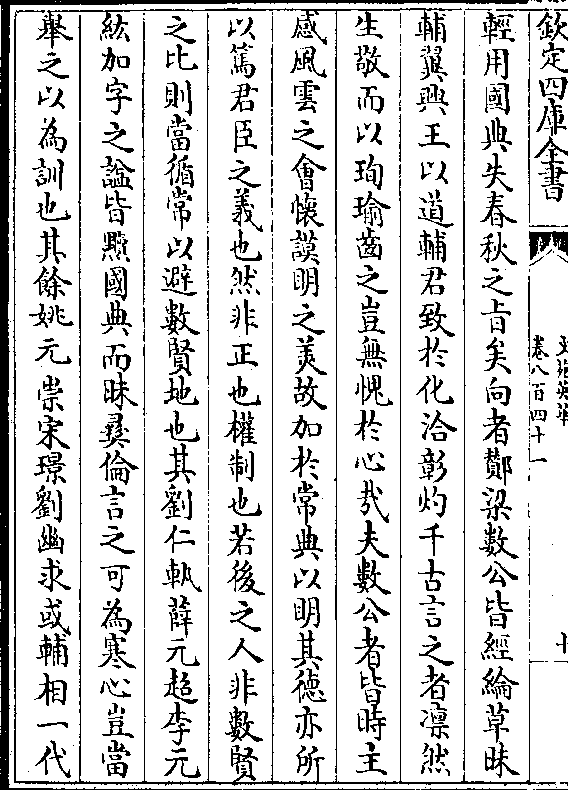 欽定四庫全書
卷八百四十一
輕用國典失春秋之旨矣向者鄭梁數公皆經綸草昧
輔翼興王以道輔君致於化洽彰灼千古言之者凛然
生敬而以珣瑜齒之豈無愧於心㢤夫數公者皆時主
感風雲之會懐謨明之美故加於常典以明其德亦所
以篤君臣之義也然非正也權制也若後之人非數賢
之比則當循常以避數賢地也其劉仁軌薛元超李元
紘加字之諡皆黷國典而昧彛倫言之可為寒心豈當
舉之以為訓也其餘姚元崇宋璟劉幽求或輔相一代